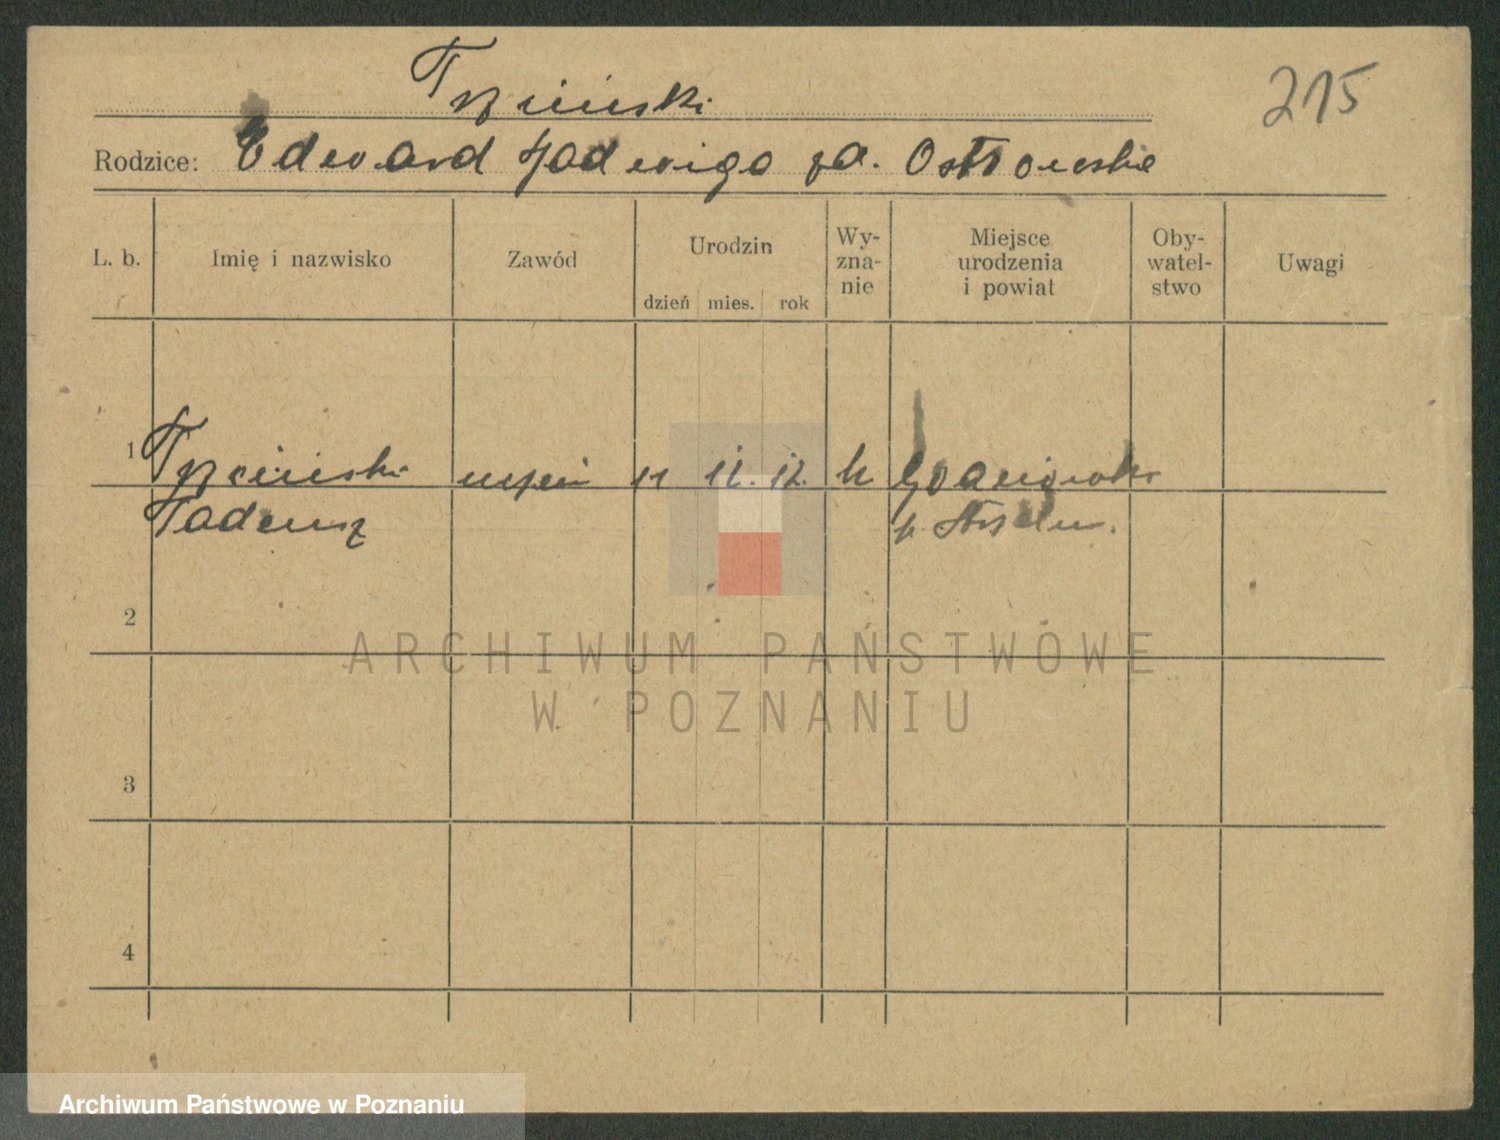 215
Rodzice: Edward Jadwiga zd. Ostrowska
L. b. Imię i nazwisko Zawód Urodzin dzień mies. rok Wy-zna-nie Miejsce urodzenia i powiat Oby-watel-stwo Uwagi
1 uczeń 11 12. 12. k
Tadeusz p.
2
3
4
ARCHIWUM PAŃSTWOWE
W POZNANIU
Archiwum Państwowe w Poznaniu